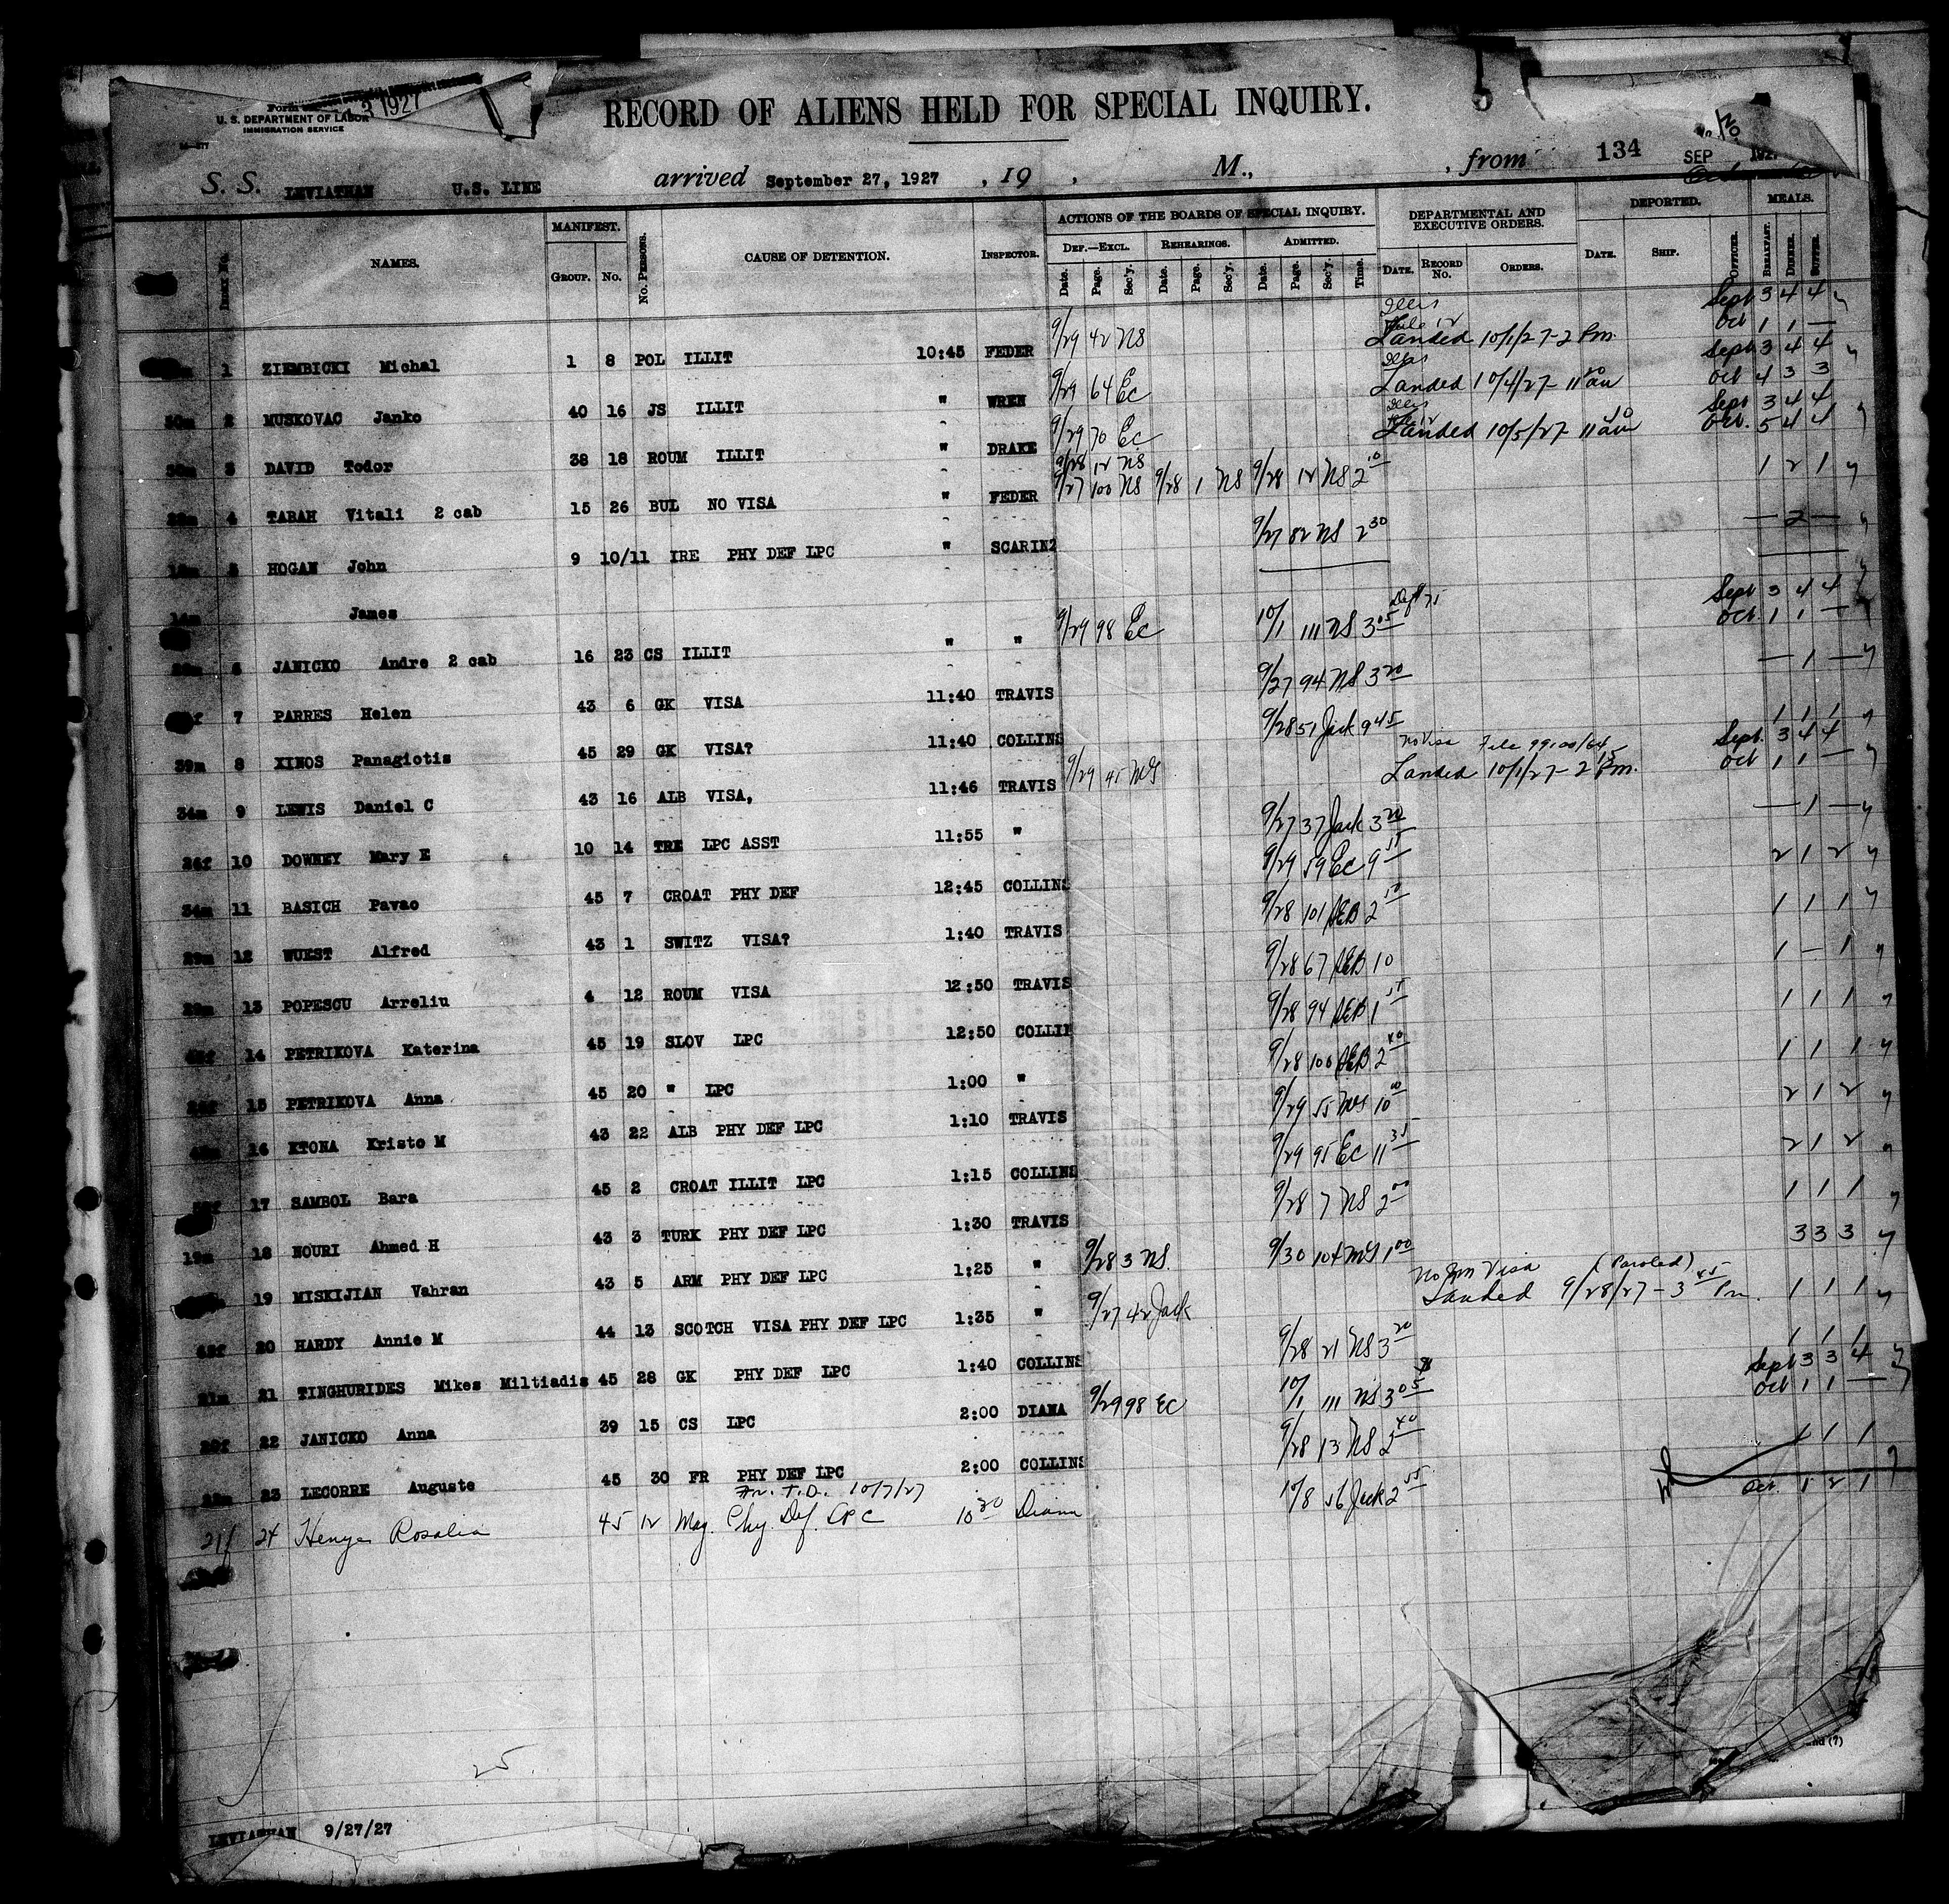 3 1927
Form
U. S. DEPARTMENT OF LABOR
IMMIGRATION SERVICE
RECORD OF ALIENS HELD FOR SPECIAL INQUIRY.
S. S. LEVIATHAN U.S. LINE arrived September 27, 1927 , 19 , M., , from 134 SEP
NAMES. MANIFEST. GROUP. No. No. PERSONS. CAUSE OF DETENTION. INSPECTOR. ACTIONS OF THE BOARDS OF SPECIAL INQUIRY. DEPARTMENTAL AND EXECUTIVE ORDERS. DEPORTED. MEALS.
DEF.—EXCL. REHEARINGS. ADMITTED.
Date. Page. Sec'y. Date. Page. Sec'y. Date. Page. Sec'y. Time. DATE. RECORD No. ORDERS. DATE. SHIP. OFFICER. BREAKFAST. DINNER. SUPPER.
1 ZIEMBICKI Michal 1 8 POL ILLIT 10:45 FEDER 9/29 42 NS Landed 10/1/27-2 Pm. Sept 3 4 4
Oct 1 1 —
2 MUSKOVAC Janko 40 16 JS ILLIT " WREN 9/29 64 EC Landed 10/4/27- 11 am Sept 3 4 4
Oct 4 3 3
3 DAVID Todor 38 18 ROUM ILLIT " DRAKE 9/29 70 EC Landed 10/5/27- 11 am Sept 3 4 4
Oct. 5 4 4
9/28 12 NS
4 TABAH Vitali 2 cab 15 26 BUL NO VISA " FEDER 9/27 100 NS 9/28 1 NS 9/28 12 NS 2 10 1 2 1
5 HOGAN John 9 10/11 IRE PHY DEF LPC " SCARINZ 9/27 82 NS 2 30 — 2 —
14m James
6 JANICKO Andre 2 cab 16 23 CS ILLIT " " 9/29 98 EC 10/1 111 NS 3 05 Sept 3 4 4
Oct 1 1 —
7 PARRES Helen 43 6 GK VISA 11:40 TRAVIS 9/27 94 NS 3 20 — 1 —
39m 8 XINOS Panagiotis 45 29 GK VISA? 11:40 COLLINS 9/28 51 Jack 9 45 1 1 1
No Visa File 99100/64
34m 9 LEWIS Daniel C 43 16 ALB VISA, 11:46 TRAVIS 9/29 45 Landed 10/1/27- 2 15 Pm. Sept. 3 4 4
Oct 1 1 —
26f 10 DOWNEY Mary E 10 14 IRE LPC ASST 11:55 " 9/27 37 Jack 3 20 — 1 —
34m 11 BASICH Pavao 45 7 CROAT PHY DEF 12:45 COLLINS 9/29 59 EC 9 55 2 1 2
29m 12 WUEST Alfred 43 1 SWITZ VISA? 1:40 TRAVIS 9/28 101 AEB 2 50 1 1 1
29m 13 POPESCU Arreliu 4 12 ROUM VISA 12:50 TRAVIS 9/28 67 AEB 10 1 — 1
14 PETRIKOVA Katerina 45 19 SLOV LPC 12:50 COLLIN 9/28 94 AEB 1 55 1 1 1
15 PETRIKOVA Anna 45 20 " LPC 1:00 " 9/28 100 AEB 2 40 1 1 1
16 KTONA Kristo M 43 22 ALB PHY DEF LPC 1:10 TRAVIS 9/29 55 10 00 2 1 2
17 SAMBOL Bara 45 2 CROAT ILLIT LPC 1:15 COLLINS 9/29 95 EC 11 35 2 1 2
19m 18 NOURI Ahmed H 43 3 TURK PHY DEF LPC 1:30 TRAVIS 9/28 7 NS 2 00 1 1 1
19 MISKIJIAN Vahran 43 5 ARM PHY DEF LPC 1:25 " 9/28 3 NS. 9/30 104 1 00 3 3 3
No Visa (Paroled)
20 HARDY Annie M 44 13 SCOTCH VISA PHY DEF LPC 1:35 " 9/27 42 Jack Landed 9/28/27-3 45 Pm. 1 1 1
21m 21 TINGHURIDES Mikes Miltiadis 45 28 GK PHY DEF LPC 1:40 COLLINS 9/28 21 NS 3 20 1 1 1
22 JANICKO Anna 39 15 CS LPC 2:00 DIANA 9/29 98 EC 10/1 111 NS 3 05 Sept 3 3 4
Oct 1 1 —
22m 23 LECORRE Auguste 45 30 FR PHY DEF LPC 2:00 COLLINS 9/28 13 NS 2 40 1 1 1
T.D. 10/7/27
21f 24 Henye Rosalia 45 12 Mag. Phy. Def. LPC 10 20 Diana 10/8 56 Jack 2 55 Oct. 1 2 1
25.
LEVIATHAN 9/27/27